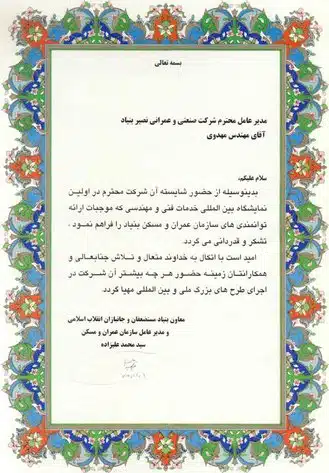 بسمه تعالی
مدیر عامل محترم شرکت صنعتی و عمرانی نصیر بنیاد
آقای مهندس مهدوی
سلام علیکم،
بدینوسیله از حضور شایسته آن شرکت محترم در اولین
نمایشگاه بین المللی خدمات فنی و مهندسی که موجبات ارائه
توانمندی های سازمان عمران و مسکن بنیاد را فراهم نمود ،
تشکر و قدردانی می گردد.
امید است با اتکال به خداوند متعال و تلاش جنابعالی و
همکارانتان زمینه حضور هر چه بیشتر آن شرکت در
اجرای طرح های بزرگ ملی و بین المللی مهیا گردد.
معاون بنیاد مستضعفان و جانبازان انقلاب اسلامی
و مدیر عامل سازمان عمران و مسکن
سید محمد علیزاده